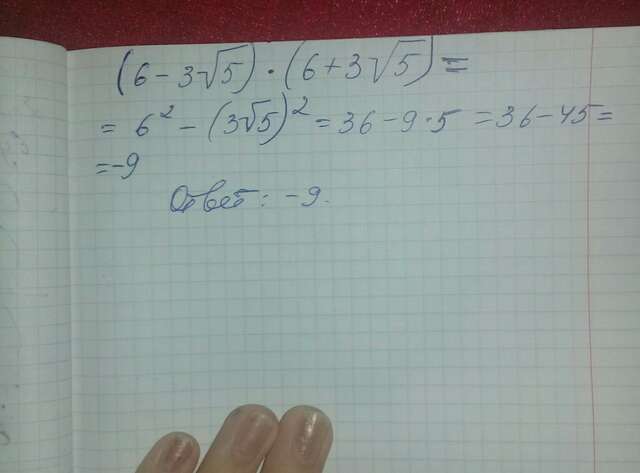 (6 - 3√5) · (6 + 3√5) =
= 6² - (3√5)² = 36 - 9 · 5 = 36 - 45 =
= -9
Ответ: -9.